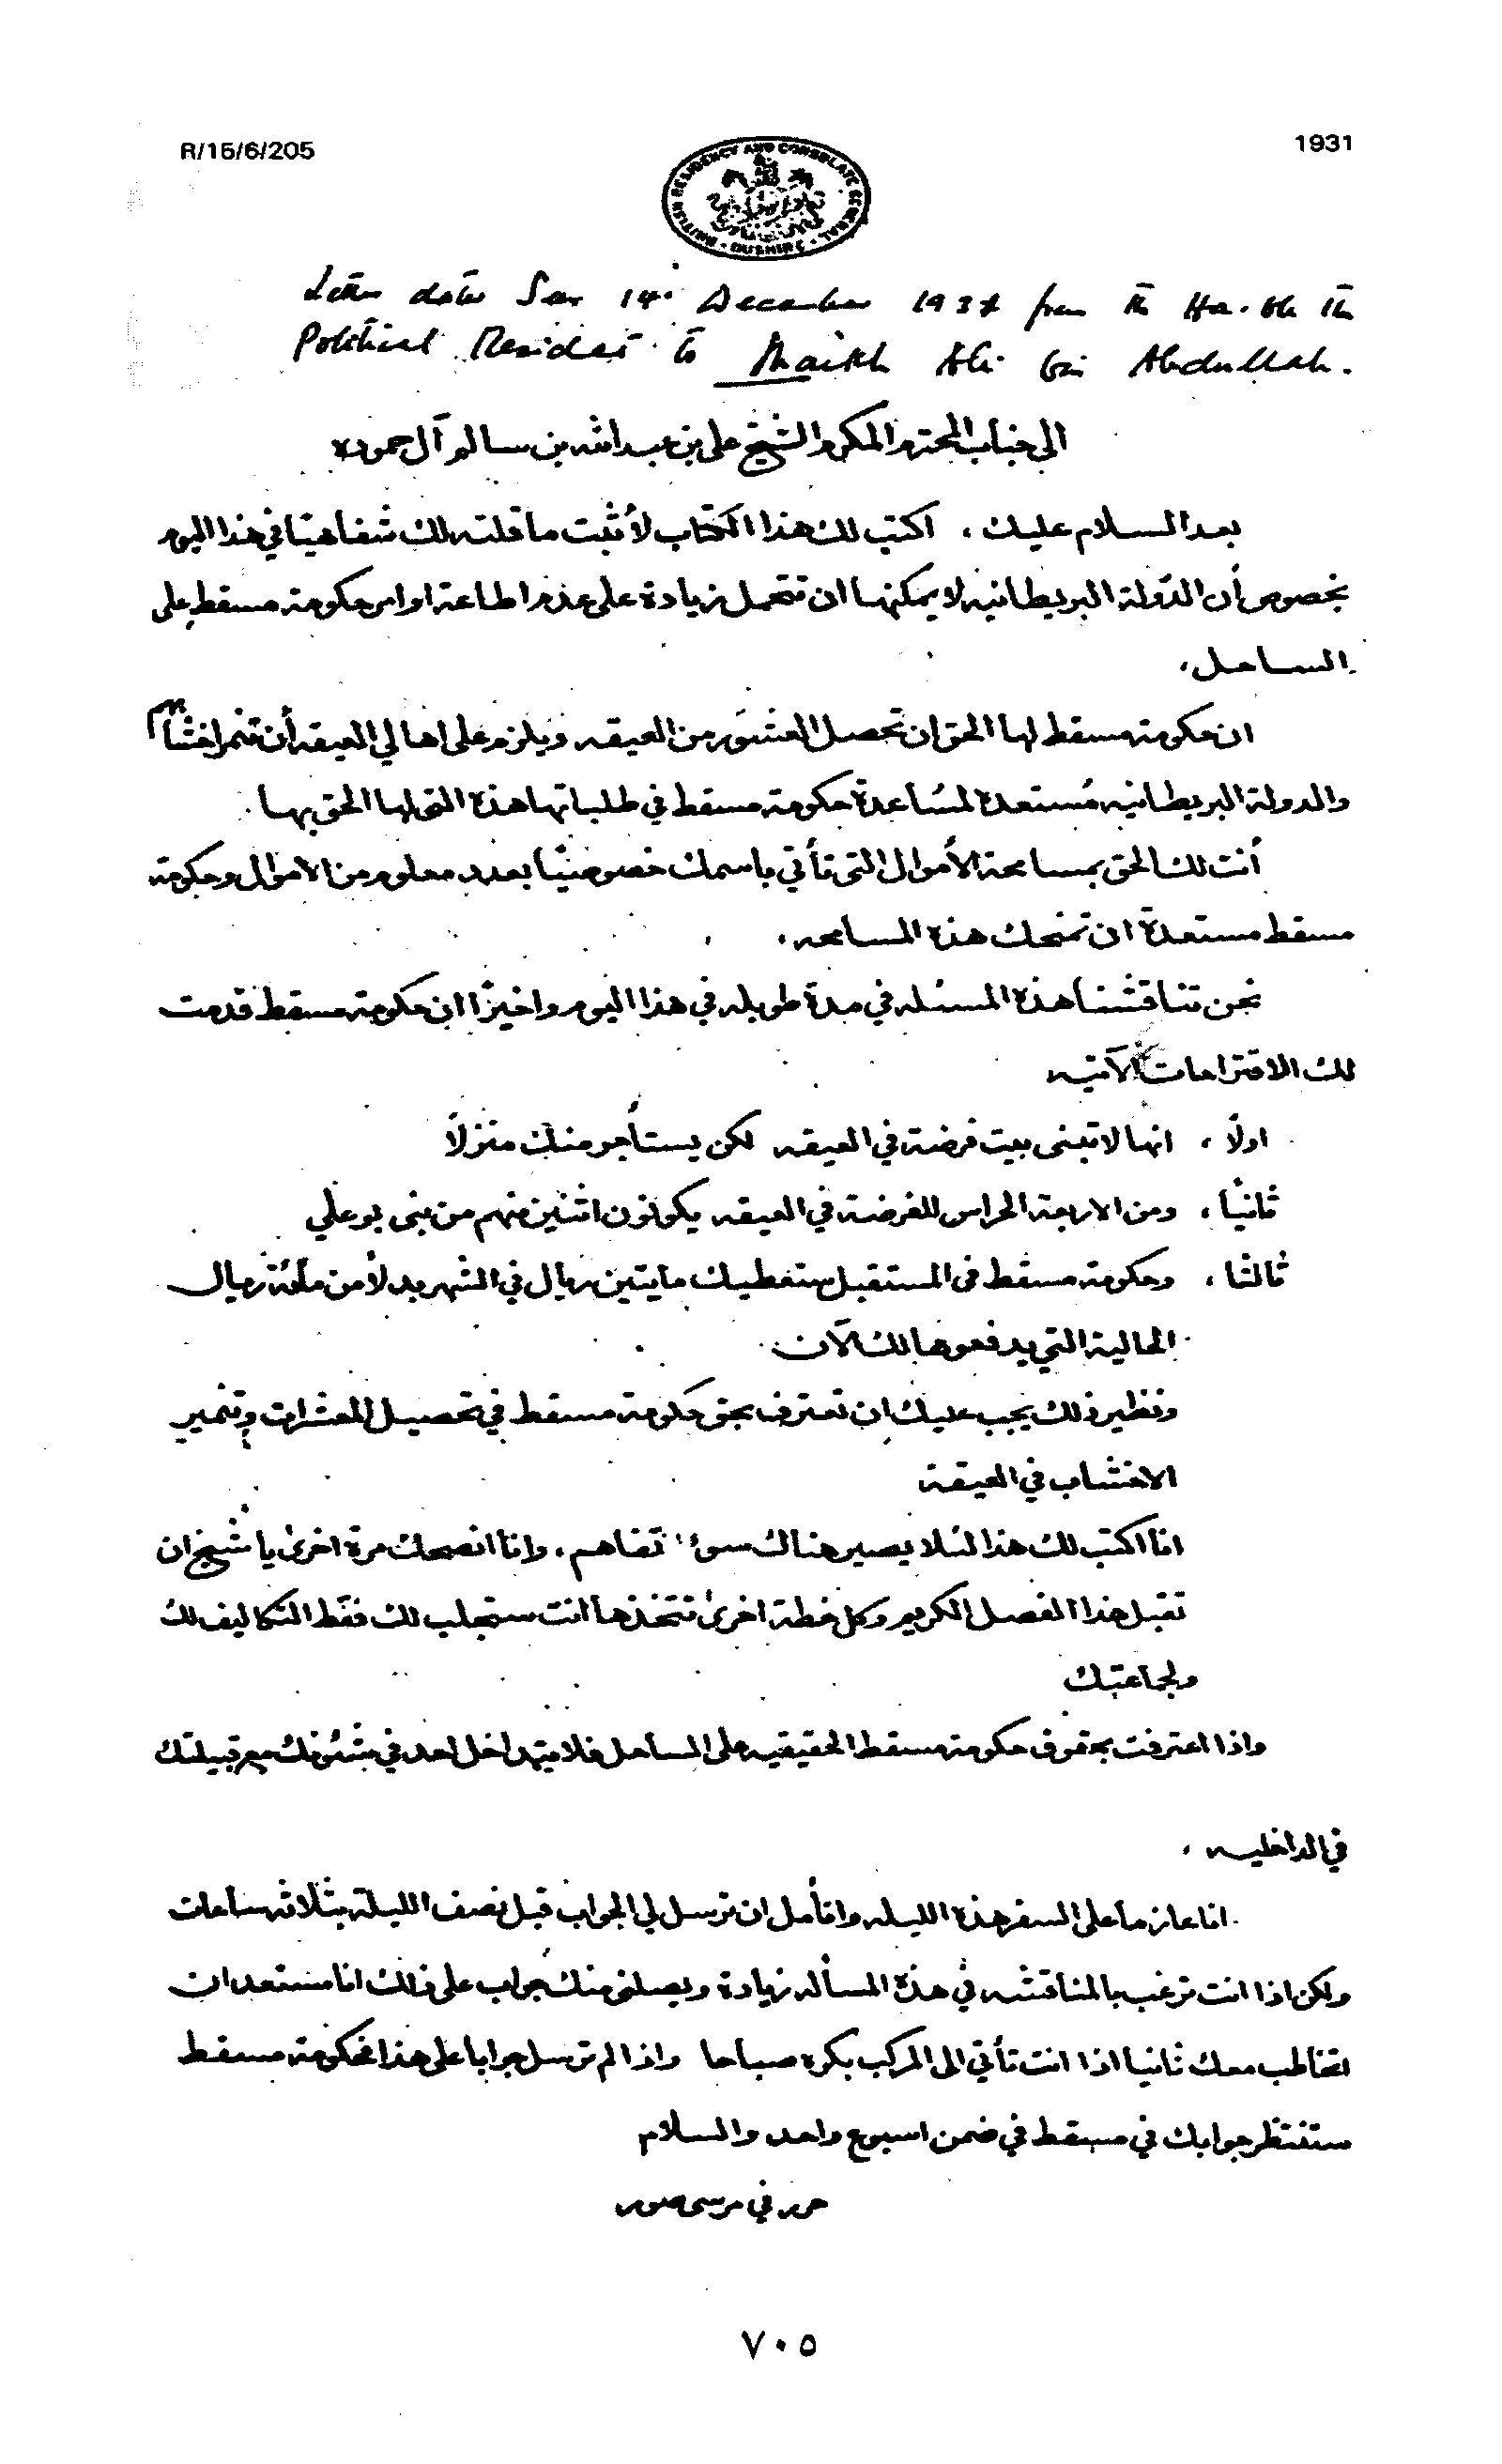 R/15/6/205
1931
BRITISH RESIDENCY AND CONSULATE GENERAL · BUSHIRE ·
Letter dated Sur 14th December 1931 from the Hon'ble the
Political Resident to Shaikh Ali bin Abdullah.
الى جناب المحترم المكرم الشيخ علي بن عبدالله بن سالم آل حموده
بعد السلام عليك ، اكتب لك هذا الكتاب لأثبت ما قلته لك شفاهيًا في هذا اليوم
بخصوص أن الدولة البريطانيه لا يمكنها ان تتحمل زيادة على عدم اطاعة اوامر حكومة مسقط على
الساحل ،
ان حكومة مسقط لها الحق ان تحصل العشور من العيقه ويلزم على اهالي العيقه أن تنمر اخشابهم
والدولة البريطانيه مُستعدة لمُساعدة حكومة مسقط في طلباتها هذة التي لها الحق بها
أنت لك الحق بمسامحة الأموال التي تأتي باسمك خصوصيًا بعدد معلوم من الاموال وحكومة
مسقط مستعدة ان تمنحك هذة المسامحه ،
نحن تناقشنا هذة المسئله في مدة طويله في هذا اليوم واخيرًا ان حكومة مسقط قدمت
لك الاقتراحات الآتيه
اولًا ، انها لا تبنى بيت فرضة في العيقه لكن يستأجر منك منزلًا
ثانيًا ، ومن الاربعة الحراس للفرضة في العيقه يكونون اثنين منهم من بنى بو علي
ثالثا ، وحكومة مسقط فى المستقبل ستعطيك مايتين ريال في الشهر بدلًا من مأئة ريال
الحالية التي يدفعوها لك الآن
ونظير ذلك يجب عليك ان تعترف بحق حكومة مسقط في تحصيل للعشرات وتنمير
الاخشاب في العيقة
انا اكتب لك هذا لئلا يصير هناك سوء تفاهم . وانا انصحك مرة اخرىٰ يا شيخ ان
تقبل هذا الفصل الكريم وكل خطة اخرىٰ تتخذها انت ستجلب لك فقط التكاليف لك
ولجماعتك
واذا اعترفت بحقوق حكومة مسقط الحقيقيه على الساحل فلا يتداخل احد في شئونك مع قبيلتك
في الداخليه ،
انا عازما على السفر هذة الليله وانأمل ان ترسل لي الجواب قبل نصف الليلة بثلاثه ساعات
ولكن اذا انت ترغب بالمناقشه في هذة المسأله زيادة ويصلنى منك جواب على ذلك انا مستعد ان
اتخاطب معك ثانيا اذا انت تأتي الى المركب بكره صباحا واذا لم ترسل جوابا على هذا فحكومة مسقط
ستنتظر جوابك في مسقط في ضمن اسبوع واحد والسلام
حرر في مرسى صور
٧٠٥